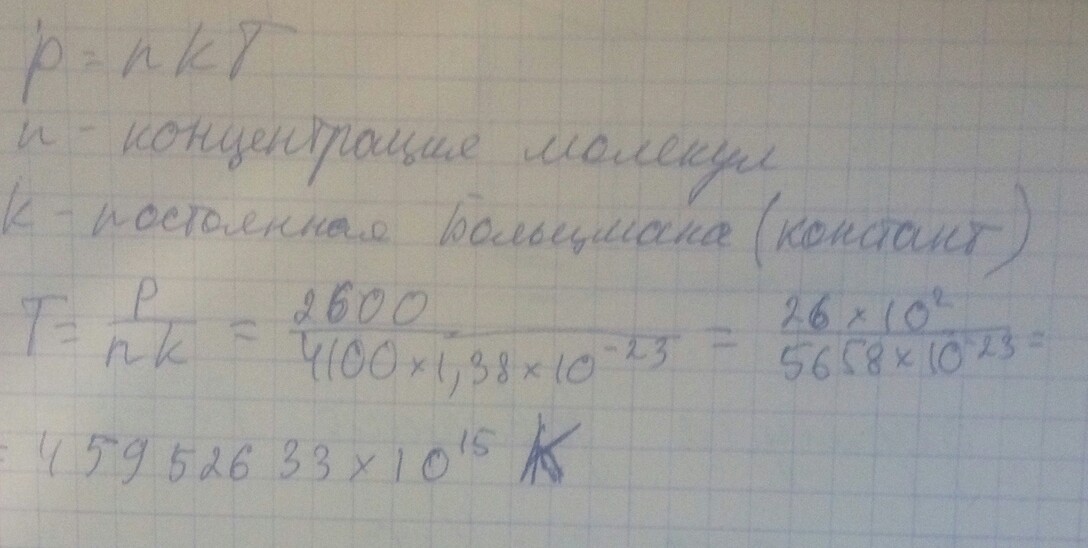 p = nkT
n - концентрация молекул
k - постоянная Больцмана (констант)
T = P/nk = 2600/4100×1,38×10⁻²³ = 26×10²/5658×10⁻²³ =
= 459526 33×10¹⁵ K